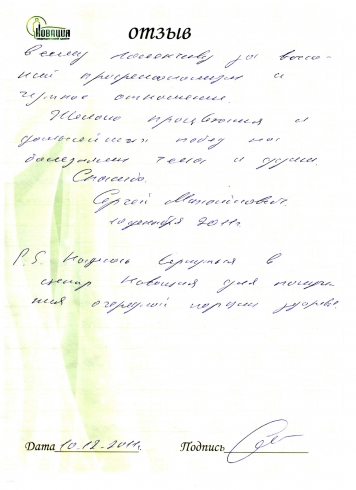 Новация
ОТЗЫВ
всему коллективу за высо-
кий профессионализм и
чуткое отношение.
Желаю процветания и
дальнейших побед над
болезнями тела и души.
Спасибо.
Сергей
10 декабря 2011г.
P.S. Надеюсь вернуться в
центр Новация для получе-
ния очередной порции здоровь
Дата 10.12.2011г. Подпись